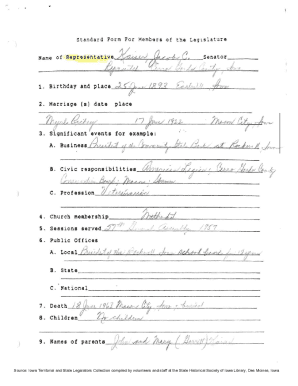 Standard Form For Members of the Legislature
Name of Representative Kaiser Jacob C. Senator
1. Birthday and place 25 Jan 1893 Iowa
2. Marriage (s) date place
17 June 1922 Mason City, Iowa
3. Significant events for example:
A. Business President of the Community State Bank at Rockwell, Iowa
B. Civic responsibilities American Legion; Cerro Gordo County
Mason; Shrine
C. Profession Veterinarian
4. Church membership Methodist
5. Sessions served 57th General Assembly 1957
6. Public Offices
A. Local President of the Rockwell Iowa School Board
B. State
C. National
7. Death 18 Mason City, Iowa
8. Children No children
9. Names of parents John and Mary
Source: Iowa Territorial and State Legislators Collection compiled by volunteers and staff at the State Historical Society of Iowa Library, Des Moines, Iowa